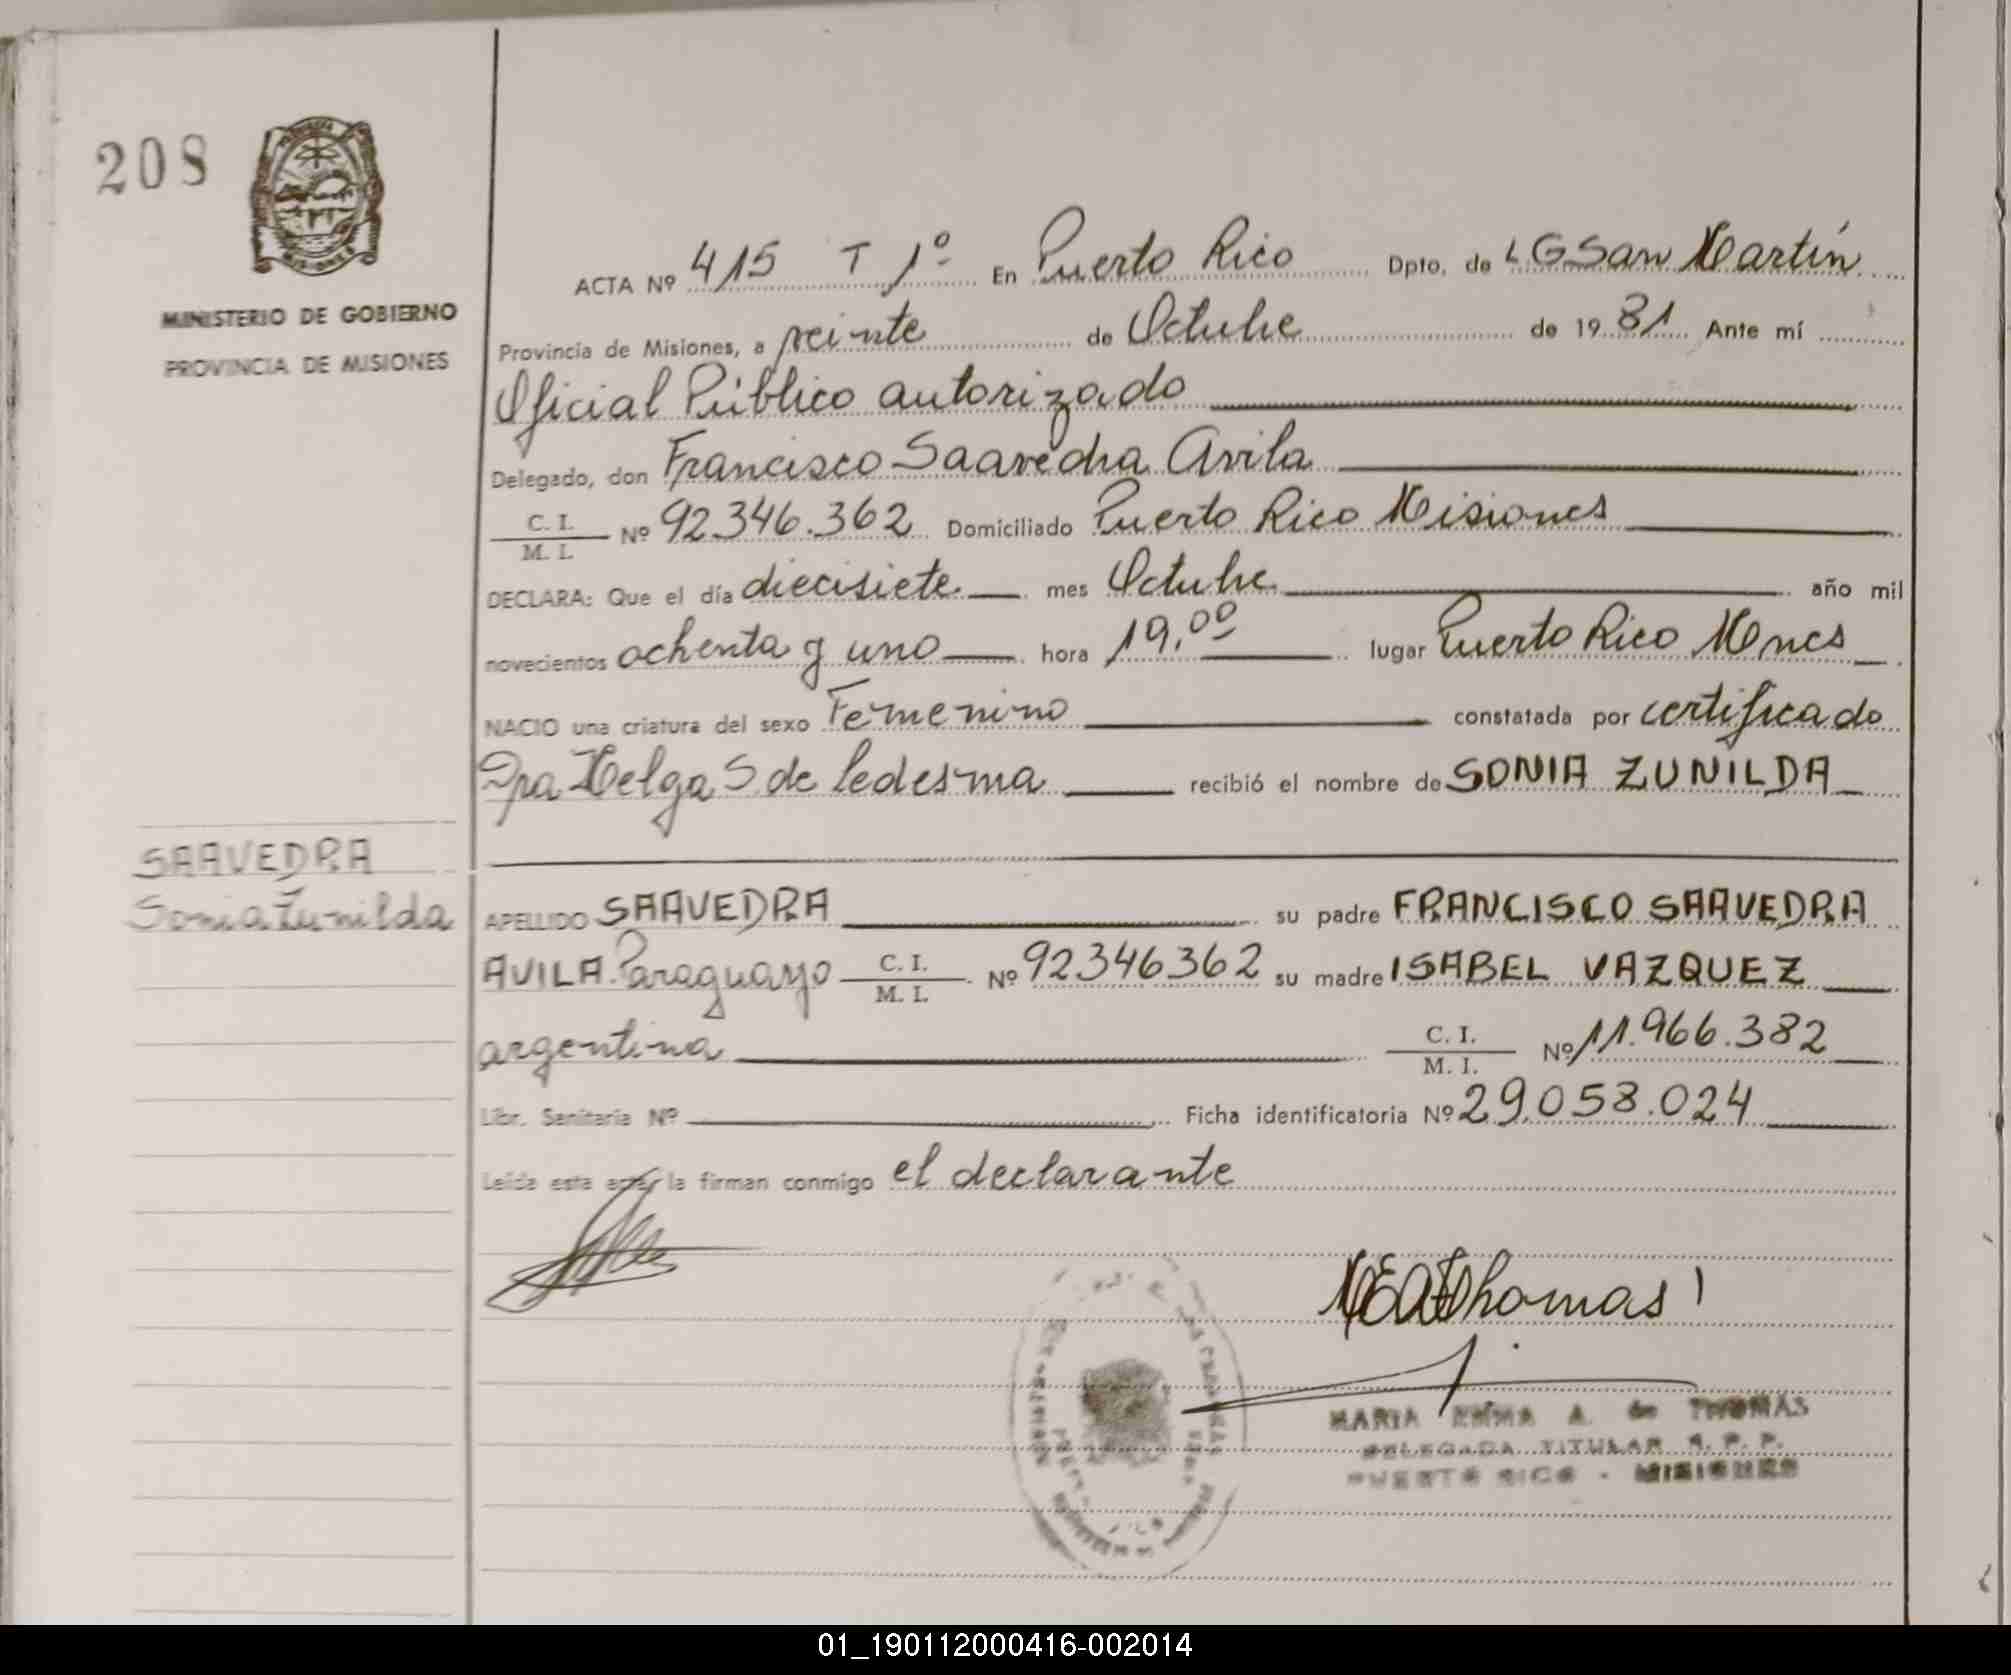 208
MINISTERIO DE GOBIERNO
PROVINCIA DE MISIONES
ACTA Nº 415 T 1º En Puerto Rico Dpto. de L G San Martín
Provincia de Misiones, a veinte de Octubre de 19 81 Ante mí
Oficial Público autorizado
Delegado, don Francisco Saavedra Avila
C. I.
M. I. Nº 92.346.362 Domiciliado Puerto Rico Misiones
DECLARA: Que el día diecisiete mes Octubre año mil
novecientos ochenta y uno hora 19,00 lugar Puerto Rico Mnes
NACIO una criatura del sexo Femenino constatada por certificado
Dra Helga S. de Ledesma recibió el nombre de SONIA ZUNILDA
SAAVEDRA
Sonia Zunilda
APELLIDO SAAVEDRA su padre FRANCISCO SAAVEDRA
AVILA Paraguayo C. I. M. I. Nº 92346362 su madre ISABEL VAZQUEZ
argentina C. I. M. I. Nº 11.966.382
Libr. Sanitaria Nº Ficha identificatoria Nº 29.058.024
Leída esta acta, la firman conmigo el declarante
MEAThomas
MARIA EMMA A. de THOMAS
DELEGADA TITULAR R. P. P.
PUERTO RICO - MISIONES
01_190112000416-002014